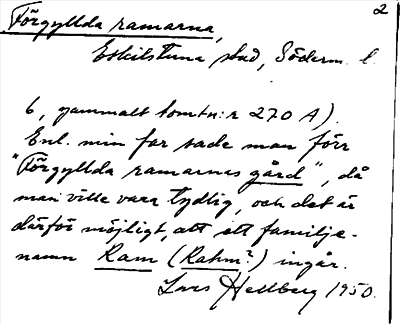 2
Förgyllda ramarna,
Eskilstuna stad, Söderm. l.
6, gammalt tomtn:r 270 A).
Enl. min far sade man förr
"Förgyllda ramarnes gård", då
man ville vara tydlig, och det är
därför möjligt, att ett familje-
namn Ram (Rahm?) ingår.
Lars Hellberg 1950.